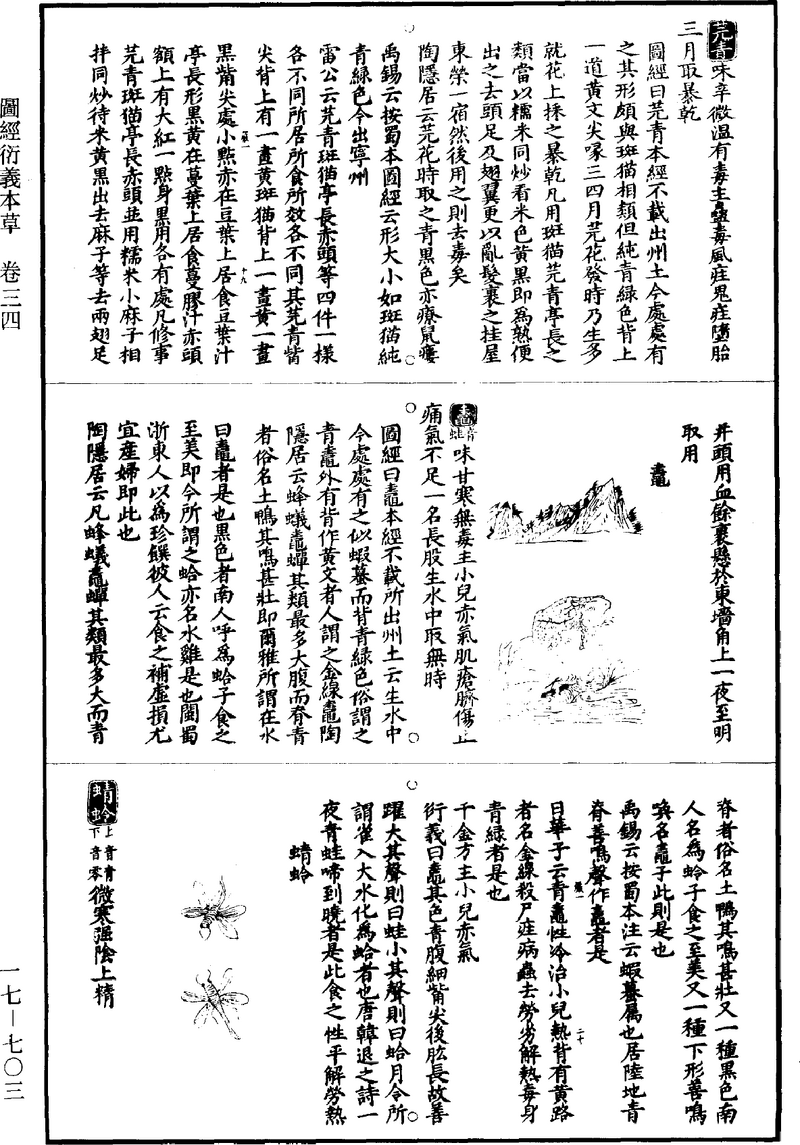 圖經衍義本草　卷三四
一七－七〇三
芫青味辛微温有毒主蠱毒風疰鬼疰墮胎
三月取暴乾
圖經曰芫青本經不載出州土今處處有
之其形頗與斑猫相類但純青緑色背上
一道黄文尖喙三四月芫花發時乃生多
就花上採之暴乾凡用斑猫芫青亭長之
類當以糯米同炒看米色黄黑即為熟便
出之去頭足及翅翼更以亂髮裹之挂屋
東榮一宿然後用之則去毒矣
陶隱居云芫花時取之青黑色亦療鼠瘻
禹錫云按蜀本圖經云形大小如斑猫純
青緑色今出寧州
雷公云芫青斑猫亭長赤頭等四件一樣
各不同所居所食所效各不同其芫青觜
尖背上有一畫黄斑猫背上一畫黄一畫
黑觜尖處小點赤在豆葉上居食豆葉汁
亭長形黑黄在蔓葉上居食蔓膠汁赤頭
額上有大紅一點身黑用各有處凡修事
芫青斑猫亭長赤頭並用糯米小麻子相
拌同炒待米黄黑出去麻子等去兩翅足
并頭用血餘裹懸於東墻角上一夜至明
取用
鼃
鼃青蛙味甘寒無毒主小兒赤氣肌瘡臍傷止
痛氣不足一名長股生水中取無時
圖經曰鼃本經不載所出州土云生水中
今處處有之似蝦蟇而背青緑色俗謂之
青鼃外有背作黄文者人謂之金線鼃陶
隱居云蜂蟻鼃蟬其類最多大腹而脊青
者俗名土鴨其鳴甚壯即爾雅所謂在水
曰鼃者是也黑色者南人呼為蛤子食之
至美即今所謂之蛤亦名水雞是也閩蜀
浙東人以為珍饌彼人云食之補虛損尤
宜産婦即此也
陶隱居云凡蜂蟻鼃蟬其類最多大而青
脊者俗名土鴨其鳴甚壯又一種黑色南
人名為蛤子食之至美又一種下形善鳴
喚名鼃子此則是也
禹錫云按蜀本注云蝦蟇屬也居陸地青
脊善鳴聲作鼃者是
日華子云青鼃性冷治小兒熱背有黄路
者名金線殺尸疰病蟲去勞劣解熱毒身
青緑者是也
千金方主小兒赤氣
衍義曰鼃其色青腹細觜尖後肱長故善
躍大其聲則曰蛙小其聲則曰蛤月令所
謂雀入大水化為蛤者也唐韓退之詩一
夜青蛙啼到曉者是此食之性平解勞熱
蜻蛉
蜻蛉上音青下音零微寒强陰止精